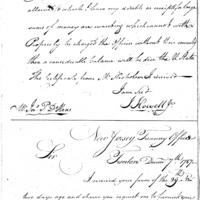 allowed & which I have my doubts as receipts for large
sums of money are wanting which cannot with
Propriety be charged the Officers without their consent
than a considerable balance will be due the State
The Certificate from Mr Nicholson I received
I am Sir &c
J Howell Jr
New Jersey Treasury Office
Sir Trenton 7th 1787
I received your favor of the
two days ago and observe you request me to